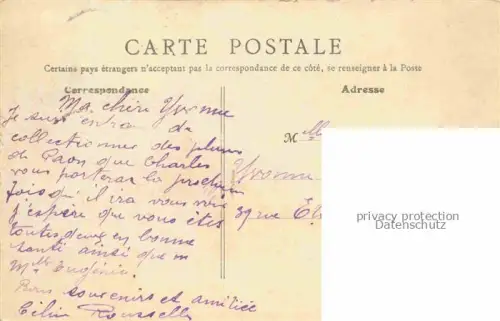 CARTE POSTALE
Certains pays étrangers n'acceptant pas la correspondance de ce côté, se renseigner à la Poste
Correspondance
Adresse
Ma chère Yvonne
Je suis entrain de
collectionner des plumes
de Paon que Charles
vous portera la prochaine
fois qu'il ira vous voir
j'espère que vous êtes
toutes deux en bonne
santé ainsi que
Mlle Eugénie.
Bons souvenirs et amitiée
Célin Rousselle
Mlle
Yvonne
39 rue
privacy protection
Datenschutz